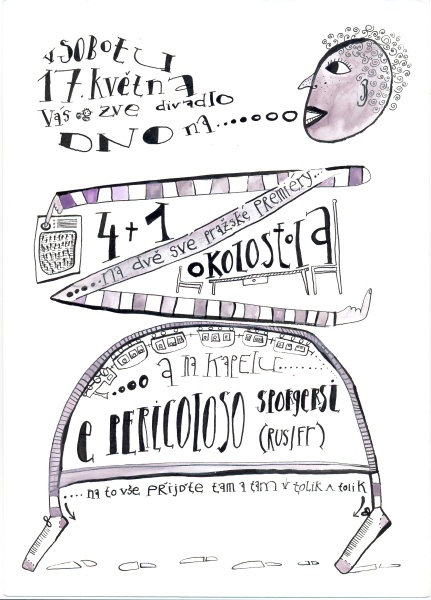 v SOBOTU
17. května
Vás zve divadlo
DNO na.......
4+1
...na dvě své pražské premiéry...
okolostola
....a na kapelu.......
e PERICOLOSO SPORGERSI
(RUS/FR)
....na to vše přijďte tam a tam v tolik a tolik